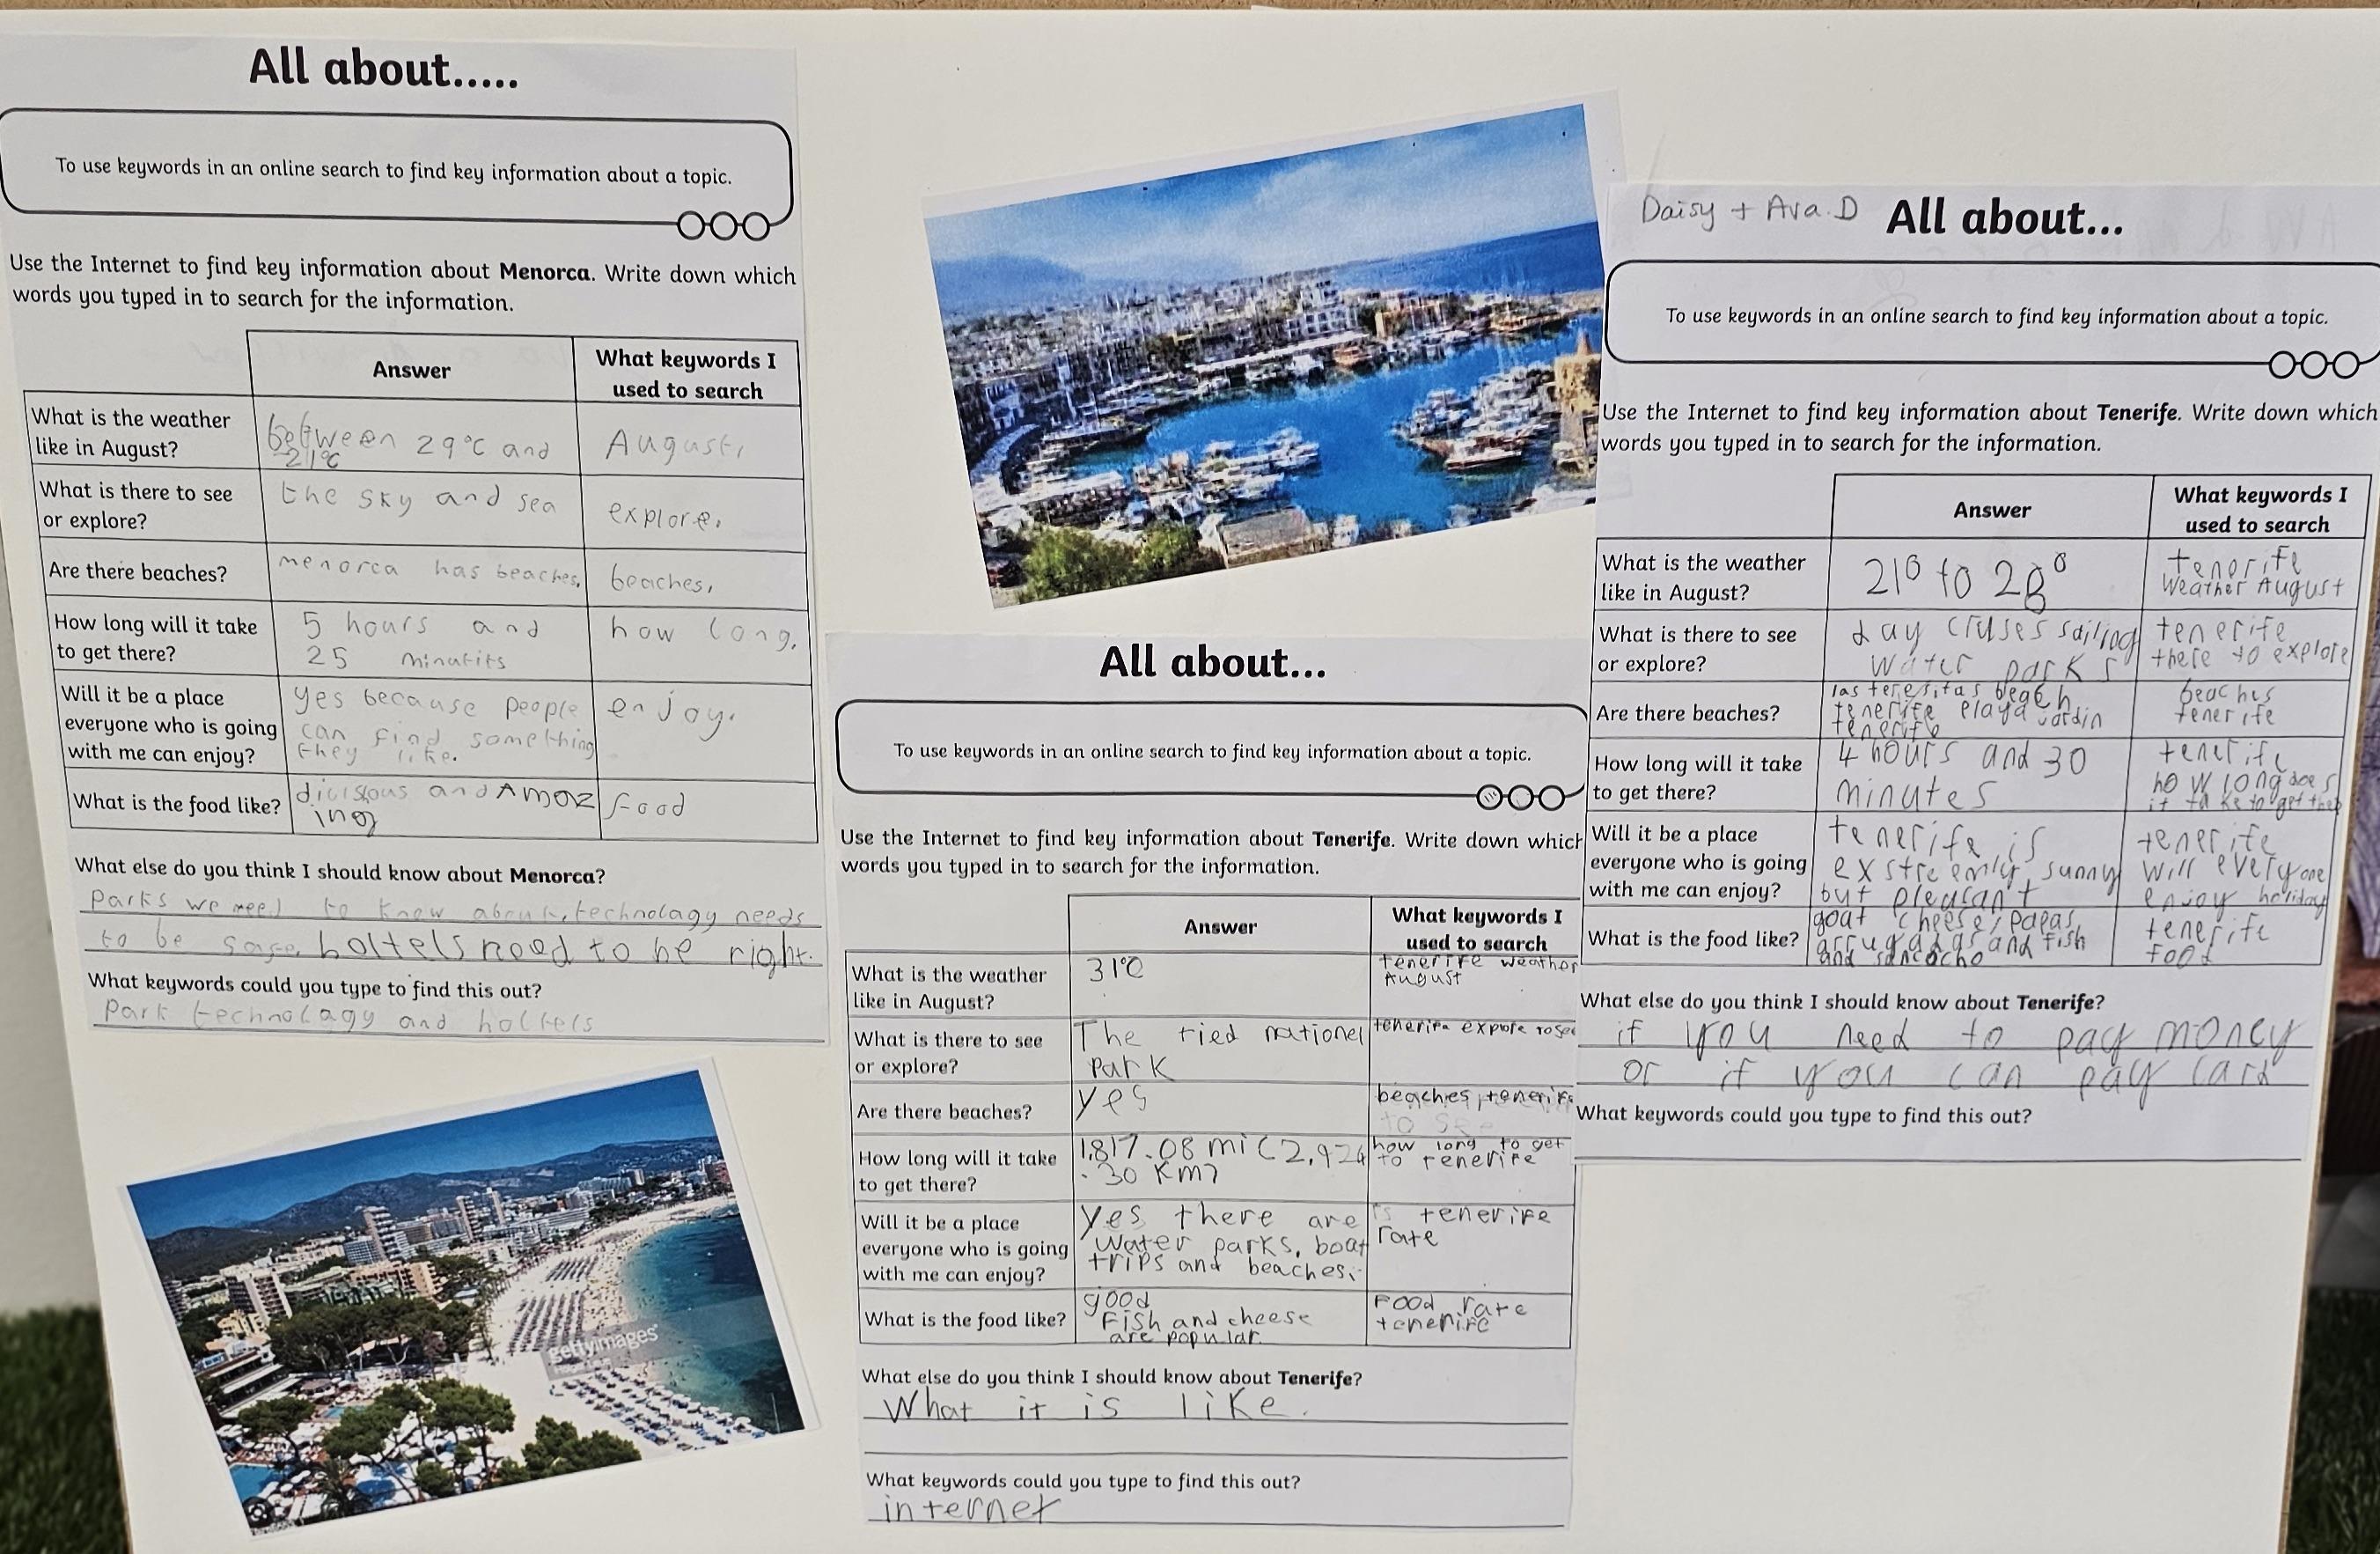 All about.....
To use keywords in an online search to find key information about a topic.
Use the Internet to find key information about Menorca. Write down which
words you typed in to search for the information.
Answer
What keywords I
used to search
What is the weather
like in August?
between 29°c and
21°c
August,
What is there to see
or explore?
the sky and sea
explore.
Are there beaches?
menorca has beaches,
beaches,
How long will it take
to get there?
5 hours and
25 minutits
how long,
Will it be a place
everyone who is going
with me can enjoy?
yes because people
can find something
they like.
enjoy.
What is the food like?
and Amaz
ing
food
What else do you think I should know about Menorca?
Parks we need to know about, technolagy needs
to be holtels need to be right.
What keywords could you type to find this out?
Park technolagy and holtels
gettyimages
All about...
To use keywords in an online search to find key information about a topic.
Use the Internet to find key information about Tenerife. Write down which
words you typed in to search for the information.
Answer
What keywords I
used to search
What is the weather
like in August?
31°C
tenerife weather
August
What is there to see
or explore?
The tied nationel
park
expore to see
Are there beaches?
yes
beaches, tenerife
to see
How long will it take
to get there?
1,817.08 mi (2,924
.30 km)
how long to get
to tenerife
Will it be a place
everyone who is going
with me can enjoy?
yes there are
water parks, boat
trips and beaches.
is tenerife
rate
What is the food like?
good
Fish and cheese
are popular.
Food rate
tenerife
What else do you think I should know about Tenerife?
What it is like.
What keywords could you type to find this out?
internet
Daisy + Ava.D
All about...
To use keywords in an online search to find key information about a topic.
Use the Internet to find key information about Tenerife. Write down which
words you typed in to search for the information.
Answer
What keywords I
used to search
What is the weather
like in August?
21° to 28°
tenerife
Weather August
What is there to see
or explore?
day cruses sailing
water parks
tenerife
there to explore
Are there beaches?
las teresitas beach
tenerife playa jardin
tenerife
beaches
tenerife
How long will it take
to get there?
4 hours and 30
minutes
tenerife
how long does
it take to get there
Will it be a place
everyone who is going
with me can enjoy?
tenerife is
exstreemly sunny
but pleasant
tenerife
will everyone
enjoy holiday
What is the food like?
goat cheese, papas
arrugadas and fish
and sancocho
tenerife
food
What else do you think I should know about Tenerife?
if you need to pay money
or if you can pay card
What keywords could you type to find this out?